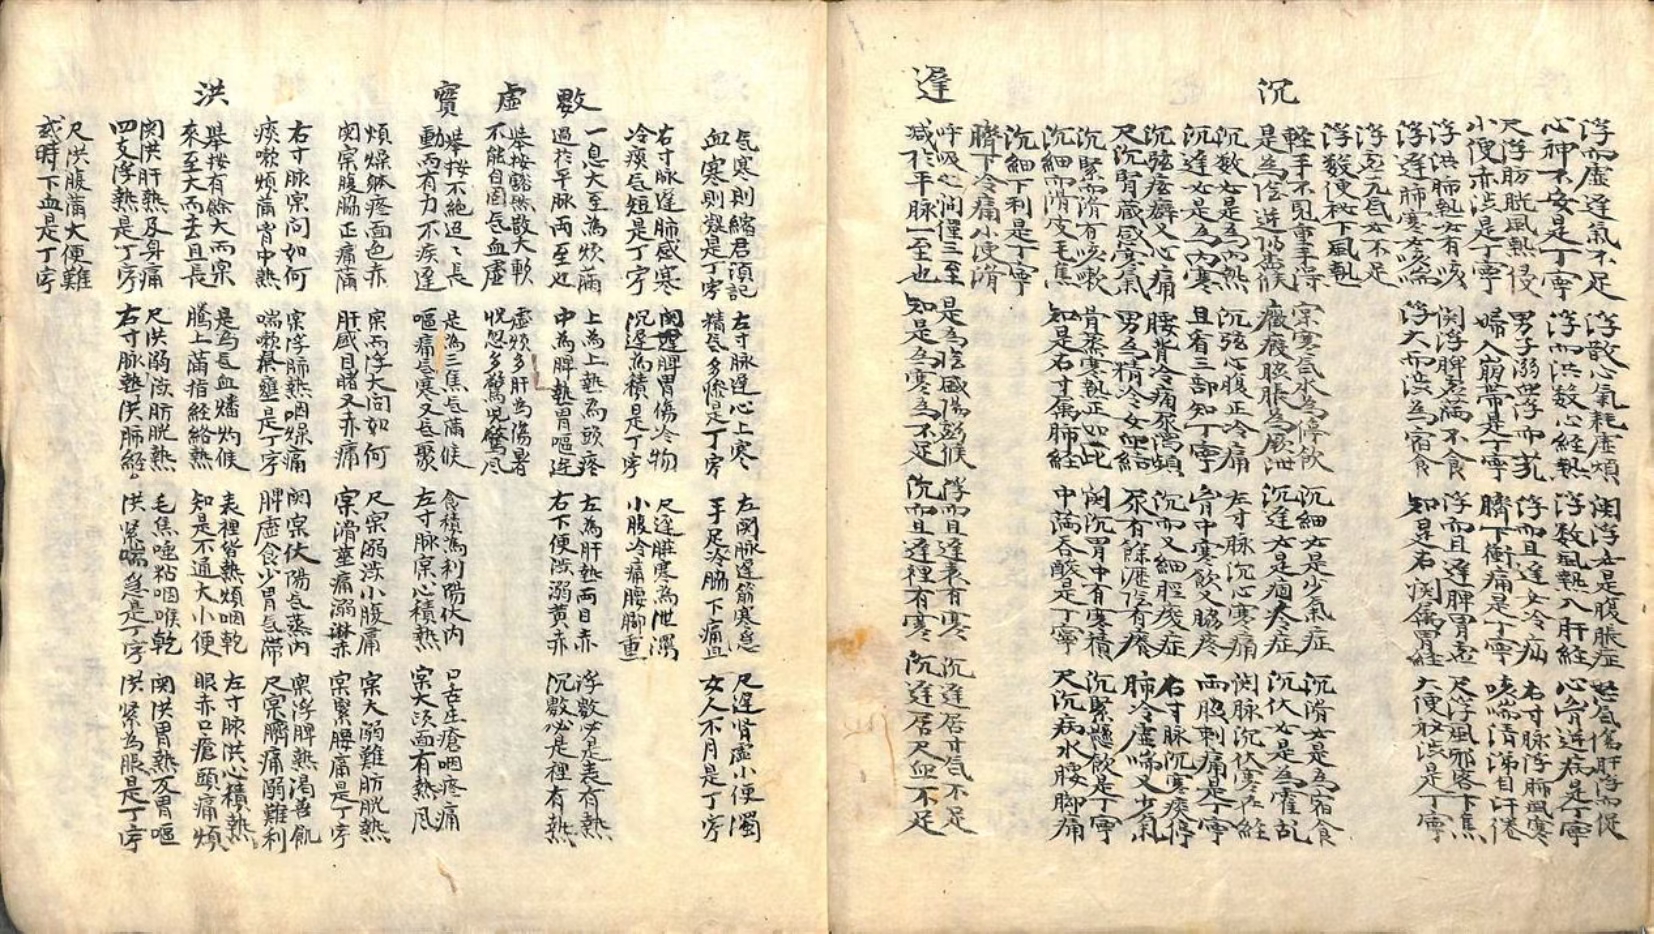 浮而虚遲氣不足 浮散心氣耗虚煩 関浮必是腹脹症 怒氣傷肝浮而促
心神不安是丁寧 浮而洪数心経熱 浮数風熱入肝経 心胃逆疾是丁寧
尺浮肪胱風熱侵 男子溺血浮而芤 浮而且遲必冷疝 右寸脉浮肺風寒
小便赤渋是丁寧 婦人崩帯是丁寧 臍下衝痛是丁寧 咳喘清涕自汗倦
浮洪肺熱必有咳 関浮脾虚満不食 浮而且遲脾胃虚 尺浮風邪客下焦
浮遲肺寒必咳喘 浮大而渋為宿食 知是右関属胃経 大便秘渋是丁寧
浮虚元氣必不足
浮数便秘下風熱
沉
軽手不見重手得 氣水為停飲 沉細必是少氣症 沉滑必是為宿食
是為陰逆陽 候 癥瘕 脹為厥泄 沉遲必是痼冷症 沉伏必是為霍乱
沉数必是為内熱 沉弦心腹正冷痛 左寸脉沉心寒痛 関脉沉伏寒在経
沉遲必是為内寒 且看三部知丁寧 胃中寒飲又脇疼 両脇刺痛是丁寧
沉弦痃癖又心痛 腰背冷病尿濁頻 沉而又細脛痠症 右寸脉沉寒痰停
尺沉腎蔵感寒氣 男為精冷女血結 尿有餘瀝陰有癢 肺冷虚喘又少氣
沉緊而滑有咳嗽 骨蒸寒熱正如此 関沉胃中有寒積 沉緊懸飲是丁寧
沉細而滑皮毛焦 知是右寸属肺経 中満呑酸是丁寧 尺沉病水腰脚痛
沉細下利是丁寧
臍下冷痛小便滑
遲
呼吸心間僅三至 是為陰盛陽虧候 浮而且遲表有寒 沉遲居寸氣不足
減於平脉一至也 知是為寒為不足 沉而且遲裡有寒 沉遲居尺血不足
氣寒則縮君須記 左寸脉遲心上寒 左関脉遲筋寒急 尺遲腎虚小便濁
血寒則凝是丁寧 精氣多惨是丁寧 手足冷脇下痛 女人不月是丁寧
右寸脉遲肺感寒 関遲脾胃傷冷物 尺遲臓寒為泄濁
冷痰氣短是丁寧 沉遲為積是丁寧 小腹冷痛腰脚重
数
一息六至為煩満 上為上熱為頭疼 左為肝熱両目赤 浮数必是表有熱
過於平脉両至也 中為脾熱胃嘔逆 右下便渋溺黄赤 沉数必是裡有熱
虚
挙按豁然散大軟 虚煩多肝為傷暑
不能自固氣血虚 恍忽多驚児驚風
實
挙按不絶迢々長 是為三焦氣満候 食積為利陽伏内 口舌生瘡咽疼痛
動而有力不疾遲 嘔痛氣寒又氣聚 左寸脉実心積熱 実大 面有熱風
煩燥躰疼面色赤 実而浮大問如何 尺実溺渋小腹痛 実大溺難肪胱熱
関実腹脇正痛満 肝盛目睹又赤痛 実滑莖痛溺淋 実緊腰痛是丁寧
右寸脉実問如何 実浮肺熱咽燥痛 関実伏陽氣蒸内 実浮脾熱渇善飢
痰嗽煩満胃中熱 喘嗽 壅是丁寧 脾虚食少胃氣滞 尺実臍痛溺難利
洪
挙按有餘大而実 是為氣血燔灼候 表裡皆熱煩咽乾 左寸脉洪心積熱
來至大而去且長 騰上満指経絡熱 知是不通大小便 眼赤口瘡頭痛煩
関洪肝熱及身痛 尺洪溺渋肪胱熱 毛焦唾粘咽喉乾 関洪胃熱反胃嘔
四支浮熱是丁寧 右寸脉熱洪肺経 洪緊喘急是丁寧 洪緊為脹是丁寧
尺洪腹満大便難
或時下血是丁寧